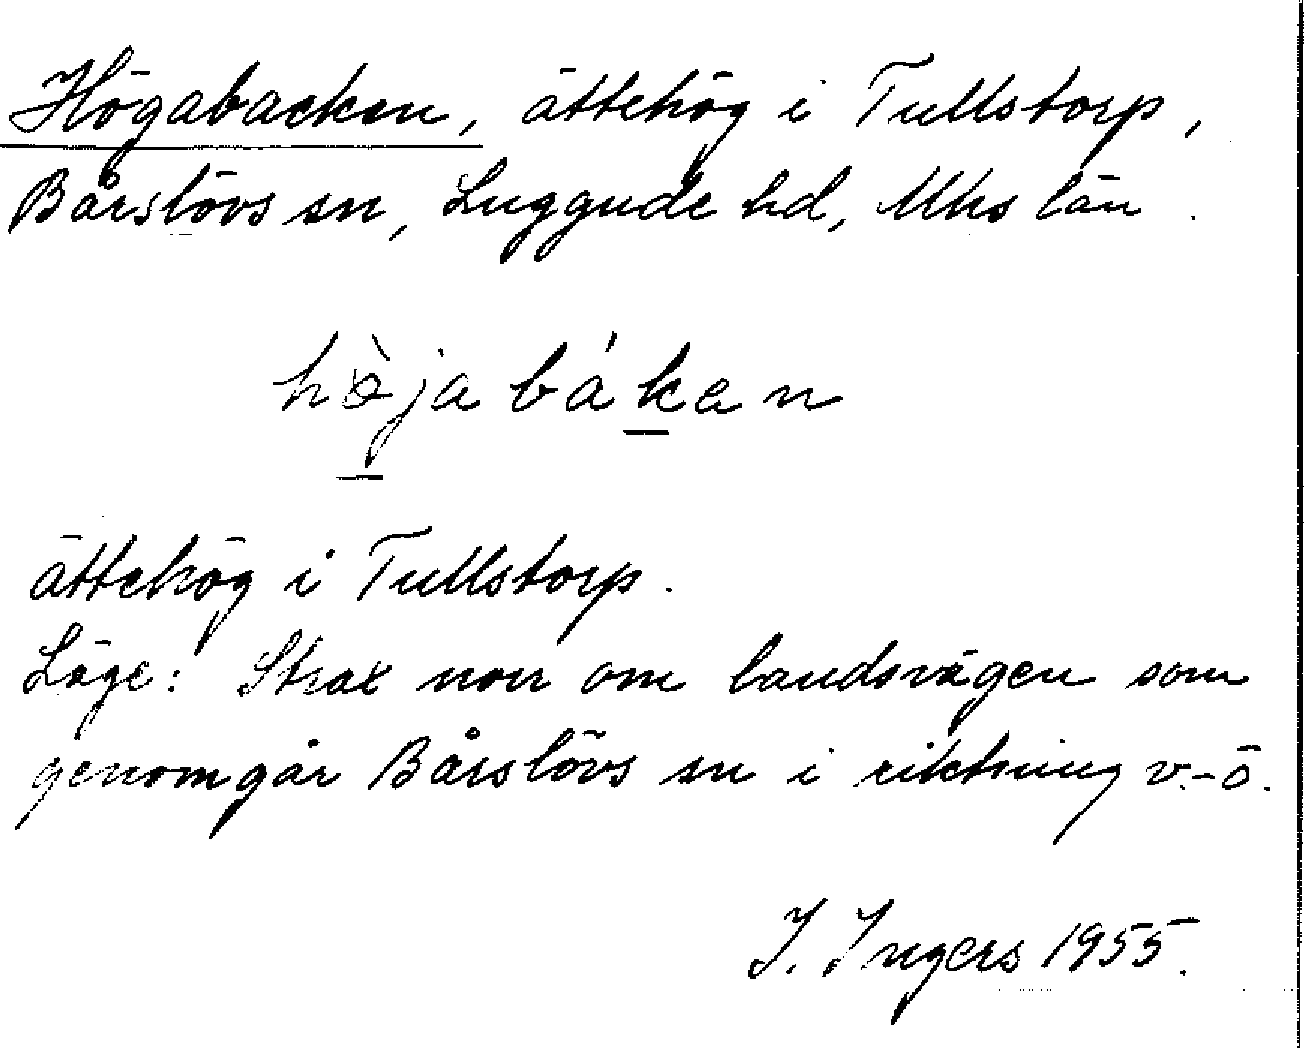 Högabacken, ättehög i Tullstorp,
Bårslövs sn, Luggude hd, Mhs län.
hø̀jabákan
ättehög i Tullstorp.
Läge: Strax norr om landsvägen som
genomgår Bårslövs sn i riktning v.-ö.
I. Ingers 1955.